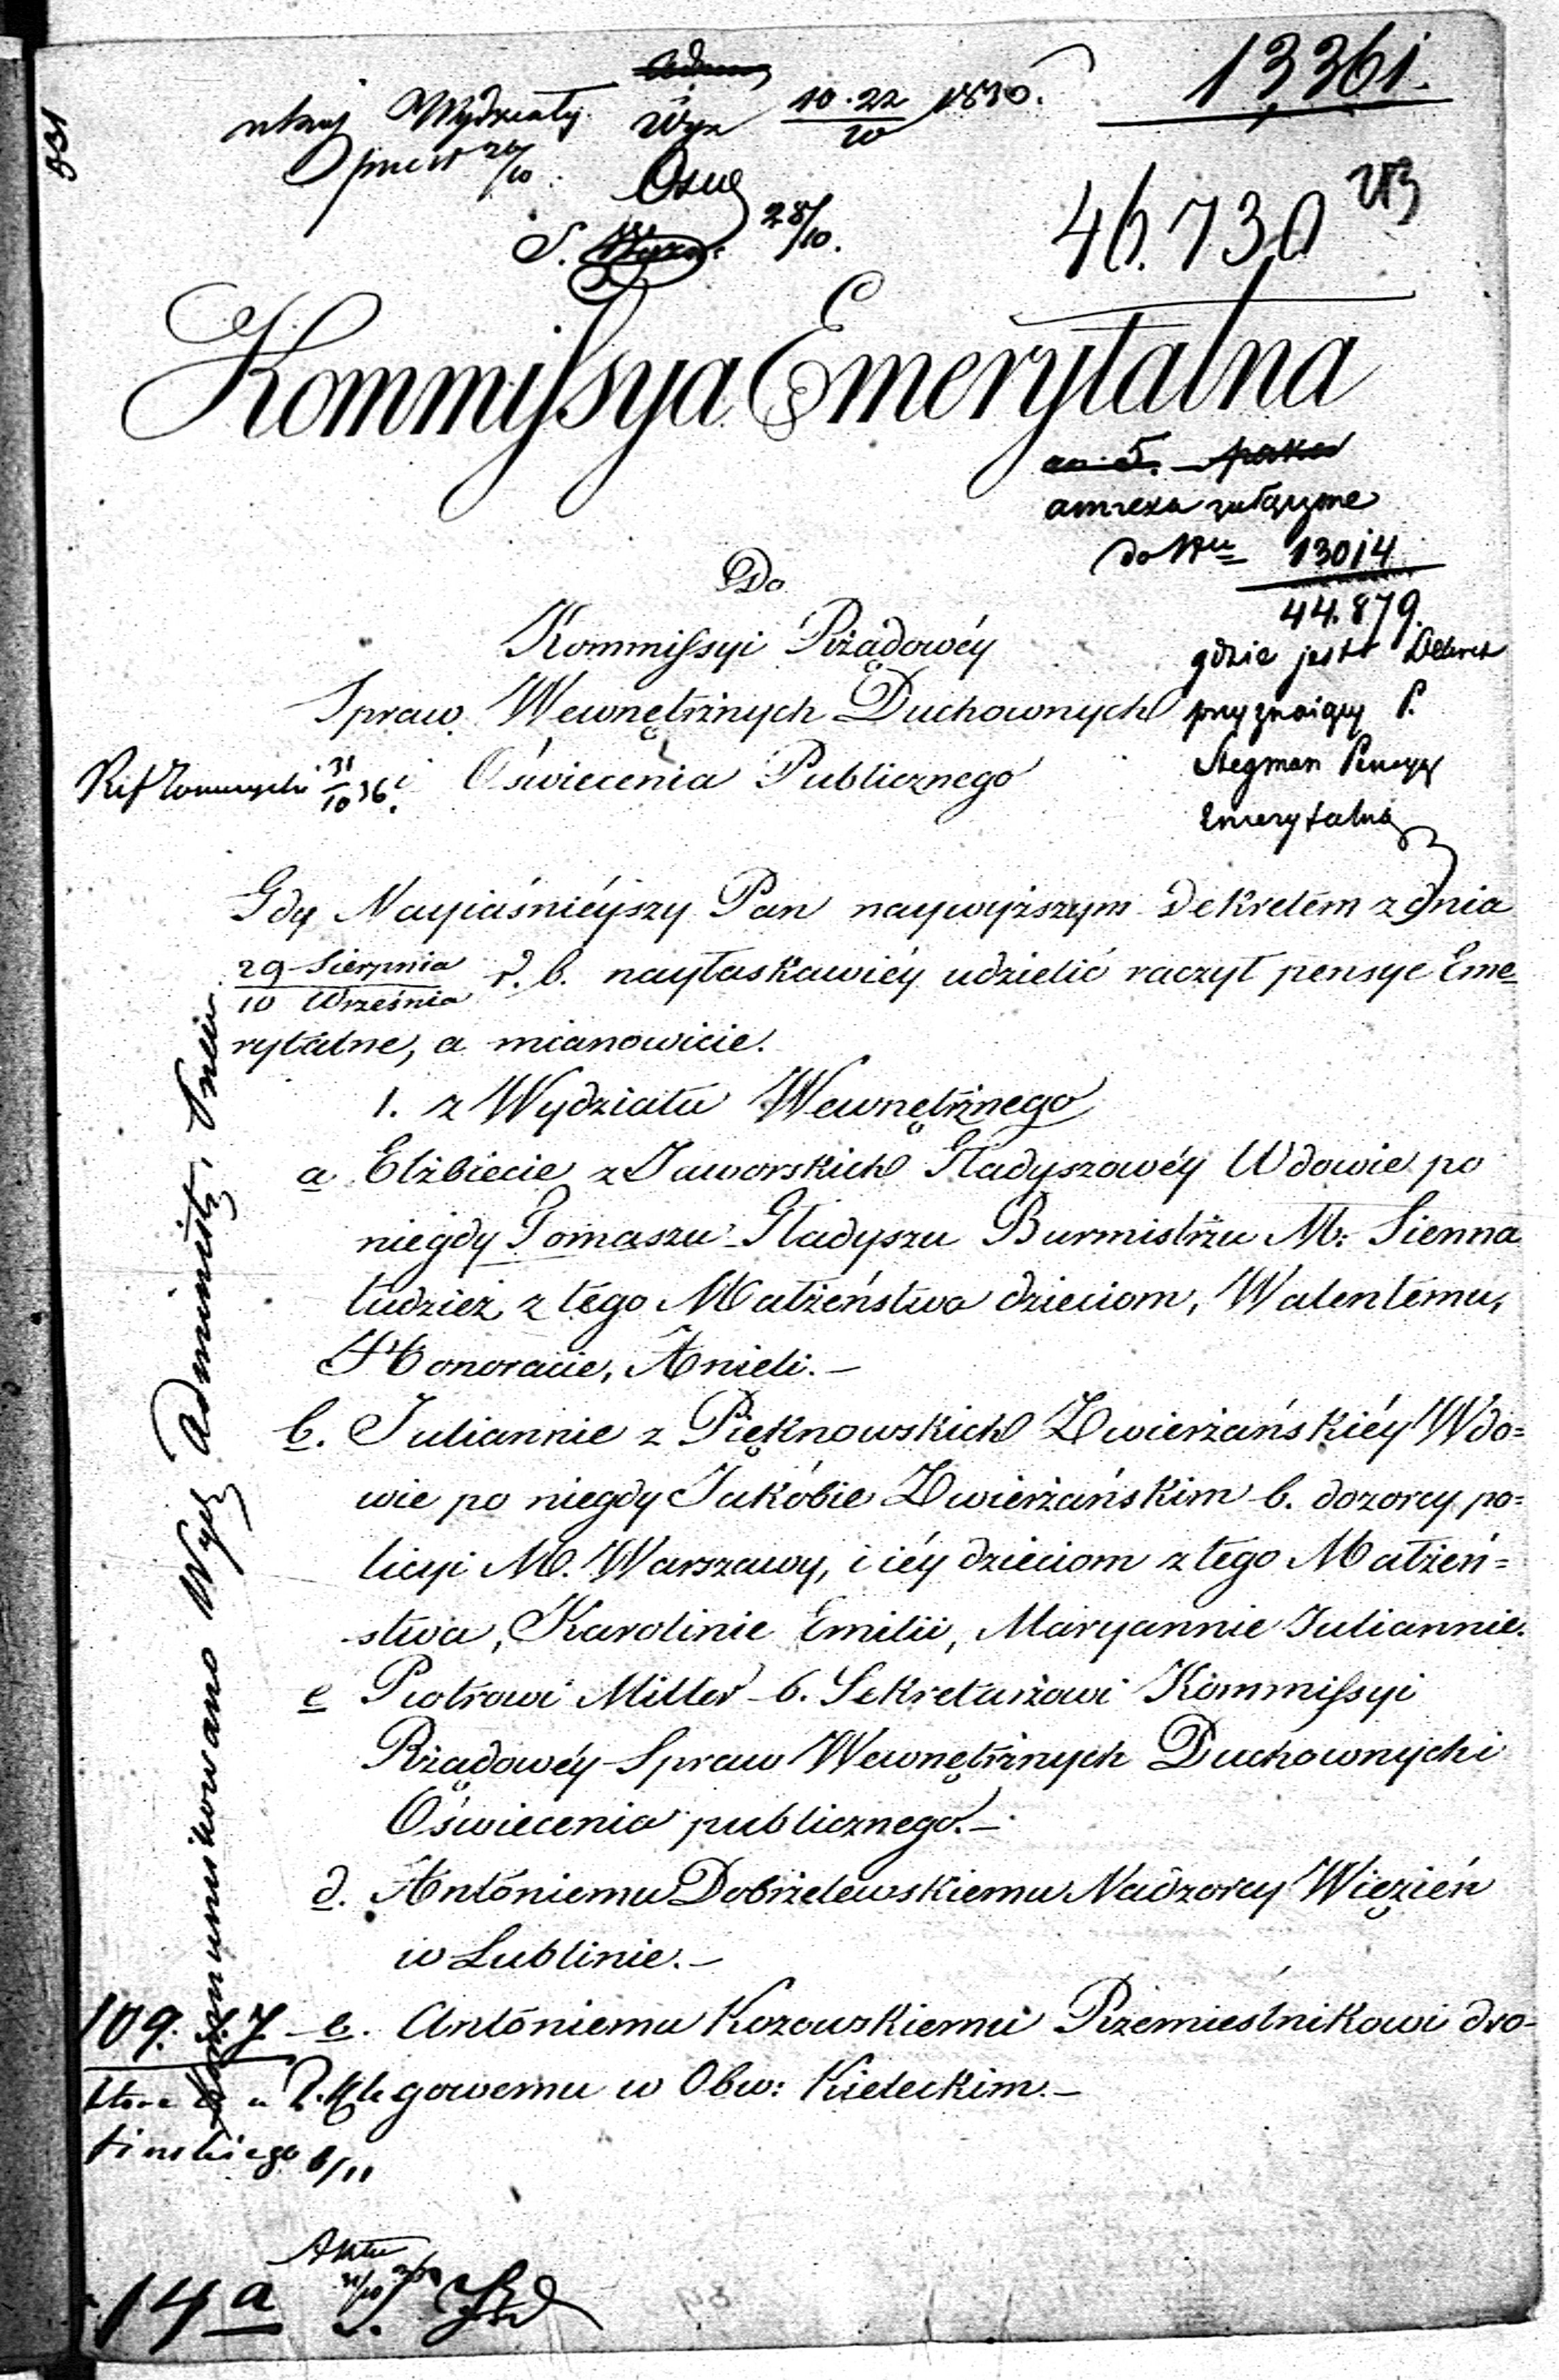 13361.
Wydziały
10·22 1836.
10
28/10.
46.730
Kommissya Emerytalna
annexa załączone
do Nru 13014
44.879.
gdzie jest Dekret
przyznaiący P.
Stegman Pensyą
Emerytalną
Do
Kommissyi Rżądowéy
Spraw Wewnętrżnych Duchownych
i Oświecenia Publicznego
31
10 36.
Gdy Nayiaśniéyszy Pan naywyższym Dekretem z dnia
29 Sierpnia
10 Września r. b. nayłaskawiéy udzielić raczył pensye Eme-
rytalne, a mianowicie.
1. z Wydziału Wewnętrżnego
a Elżbiecie z Jaworskich Gładyszowéy Wdowie po
niegdy Tomaszu Gładyszu Burmistrżu M: Sienna
tudzież z tego Małżeństwa dzieciom, Walentemu,
Honoracie, Anieli.—
b. Juliannie z Pięknowskich Zwierżańskiéy Wdo=
wie po niegdy Jakóbie Zwierżańskim b. dozorcy po=
licyi M. Warszawy, i iéy dzieciom z tego Małżeń=
stwa, Karolinie Emilii, Maryannie Juliannie.
c Piotrowi Miller b. Sekretarżowi Kommissyi
Rżądowéy Spraw Wewnętrżnych Duchownych i
Oświecenia publicznego.—
d. Antoniemu Dobrżelewskiemu Nadzorcy Więzień
w Lublinie.—
e. Antoniemu Kozowskiemu Przemieślnikowi dro-
gowemu w Obw: Kieleckim.—
Kommunikowano Wydz Administ.
109.
8/11
14 a